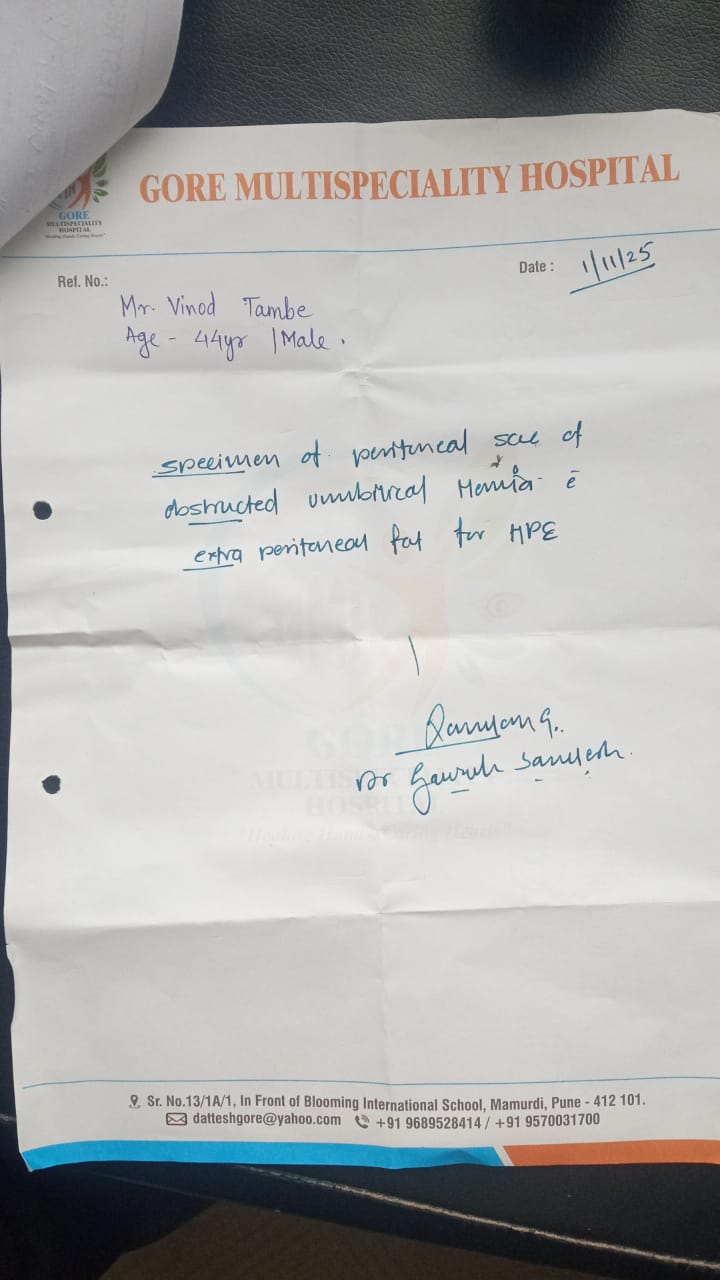 GORE MULTISPECIALITY HOSPITAL
GORE
MULTISPECIALITY
HOSPITAL
"Healing Hands, Caring Hearts"
Date : 1/11/25
Ref. No.:
Mr. Vinod Tambe
Age - 44yr / Male.
specimen of peritoneal sac of
obstructed umbilical Hernia c̄
extra peritoneal fat for HPE
Dr
GORE
MULTISPECIALITY
HOSPITAL
"Healing Hands, Caring Hearts"
Sr. No.13/1A/1, In Front of Blooming International School, Mamurdi, Pune - 412 101.
datteshgore@yahoo.com +91 9689528414 / +91 9570031700